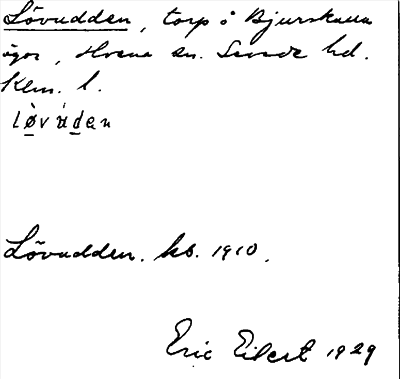 Lövudden, torp å Bjurskalla
ägor, Hvena sn. Sevede hd.
Klm. l.
løvuden
Lövudden. kb. 1910.
Eric Eilert 1929